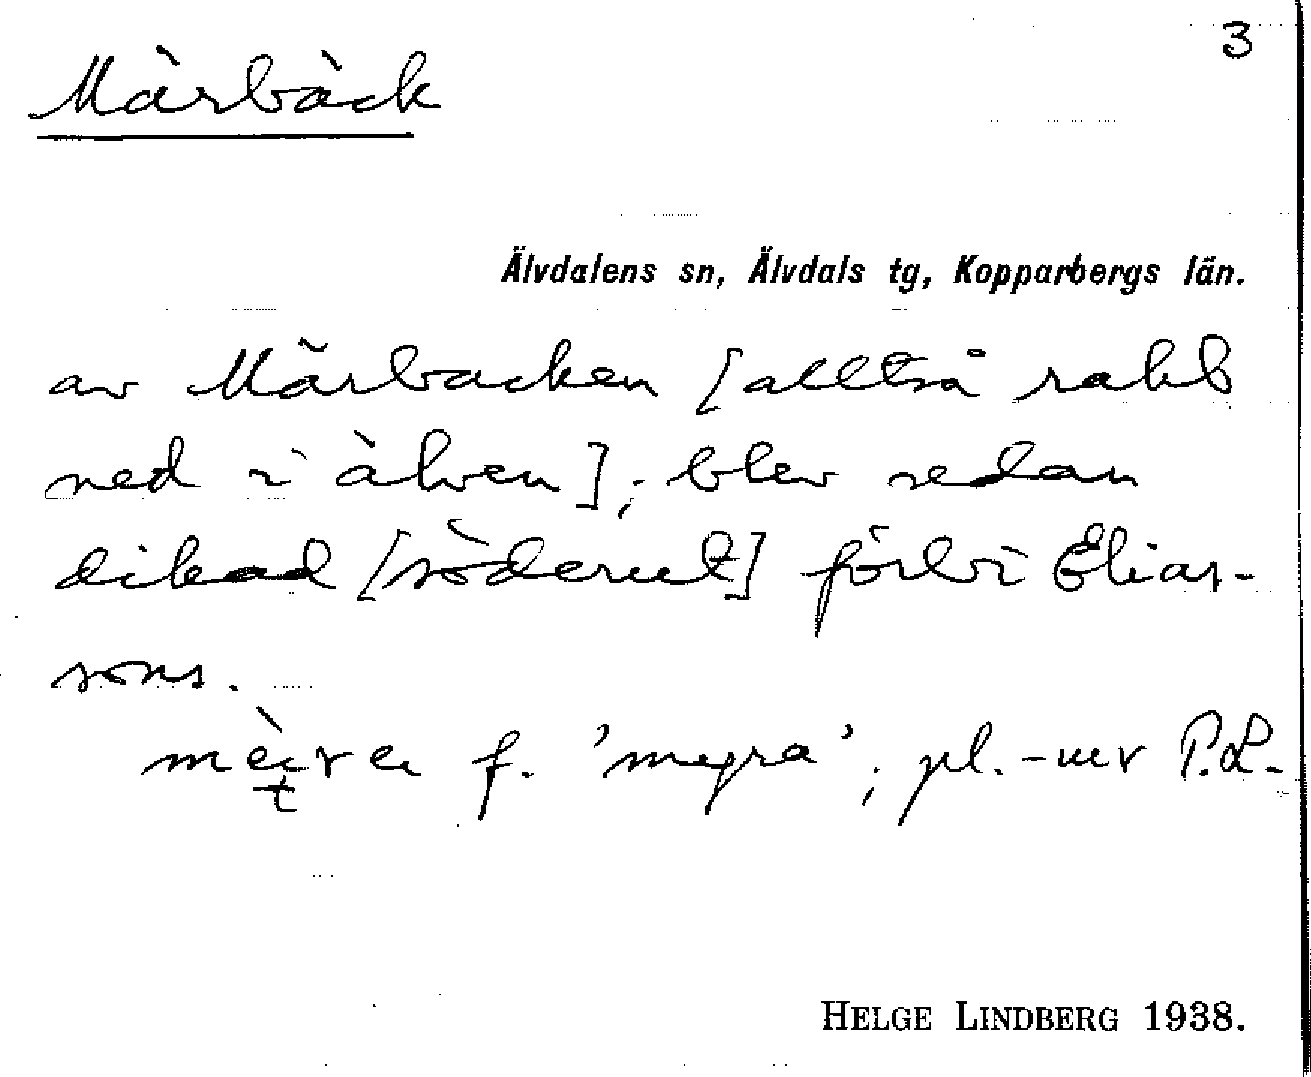 3
Märbäck
Älvdalens sn, Älvdals tg, Kopparbergs län.
av Märbacken [alltså rakt
ned i älven]; blev sedan
dikad [söderut] förbi Elias-
sons.
f. 'myra'; pl. -ur P.L.
HELGE LINDBERG 1938.